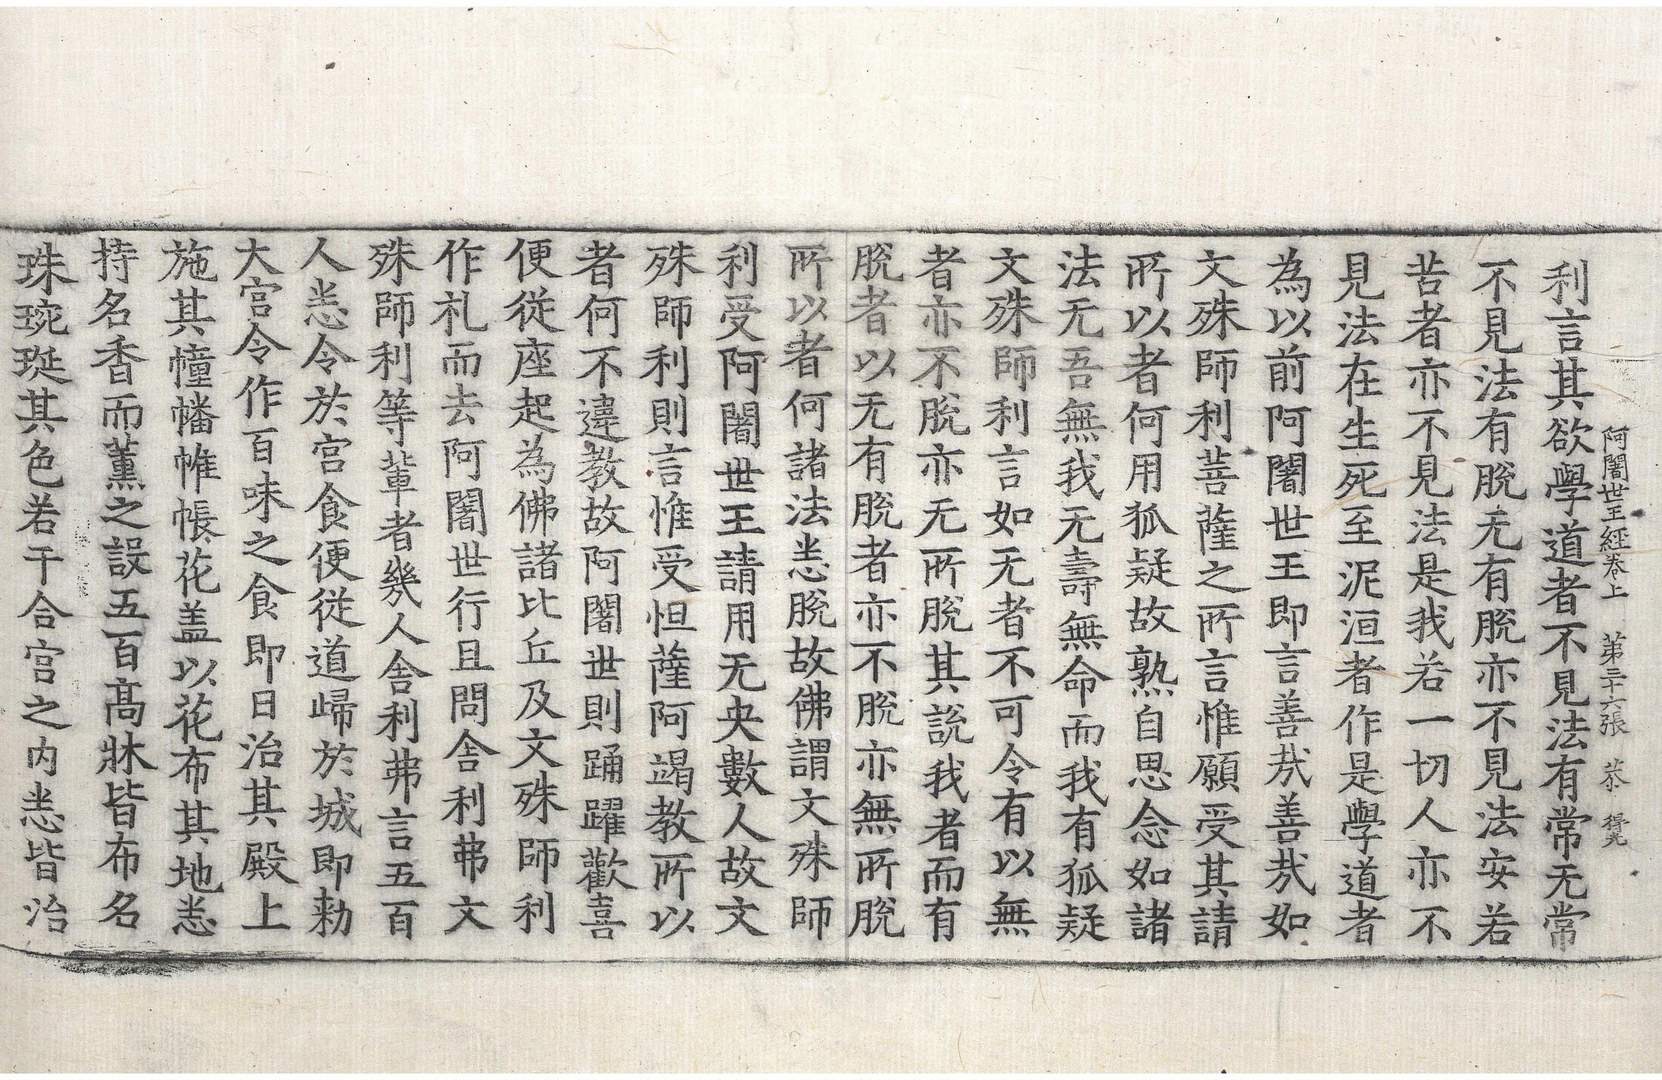 阿闍世王經卷上　第二十六張　恭
利言其欲學道者不見法有常无常
不見法有脫无有脫亦不見法安若
苦者亦不見法是我若一切人亦不
見法在生死至泥洹者作是學道者
為以前阿闍世王即言善哉善哉如
文殊師利菩薩之所言惟願受其請
所以者何用狐疑故熟自思念如諸
法无吾無我无壽無命而我有狐疑
文殊師利言如无者不可令有以無
者亦不脫亦无所脫其說我者而有
脫者以无有脫者亦不脫亦無所脫
所以者何諸法悉脫故佛謂文殊師
利受阿闍世王請用无央數人故文
殊師利則言惟受怛薩阿竭教所以
者何不違教故阿闍世則踊躍歡喜
便從座起為佛諸比丘及文殊師利
作礼而去阿闍世行且問舍利弗文
殊師利等輩者幾人舍利弗言五百
人悉令於宮食便從道歸於城即勅
大宮令作百味之食即日治其殿上
施其幢幡帷帳花盖以花布其地悉
持名香而薰之設五百高牀皆布名
珠琬珽其色若干合宮之內悉皆治